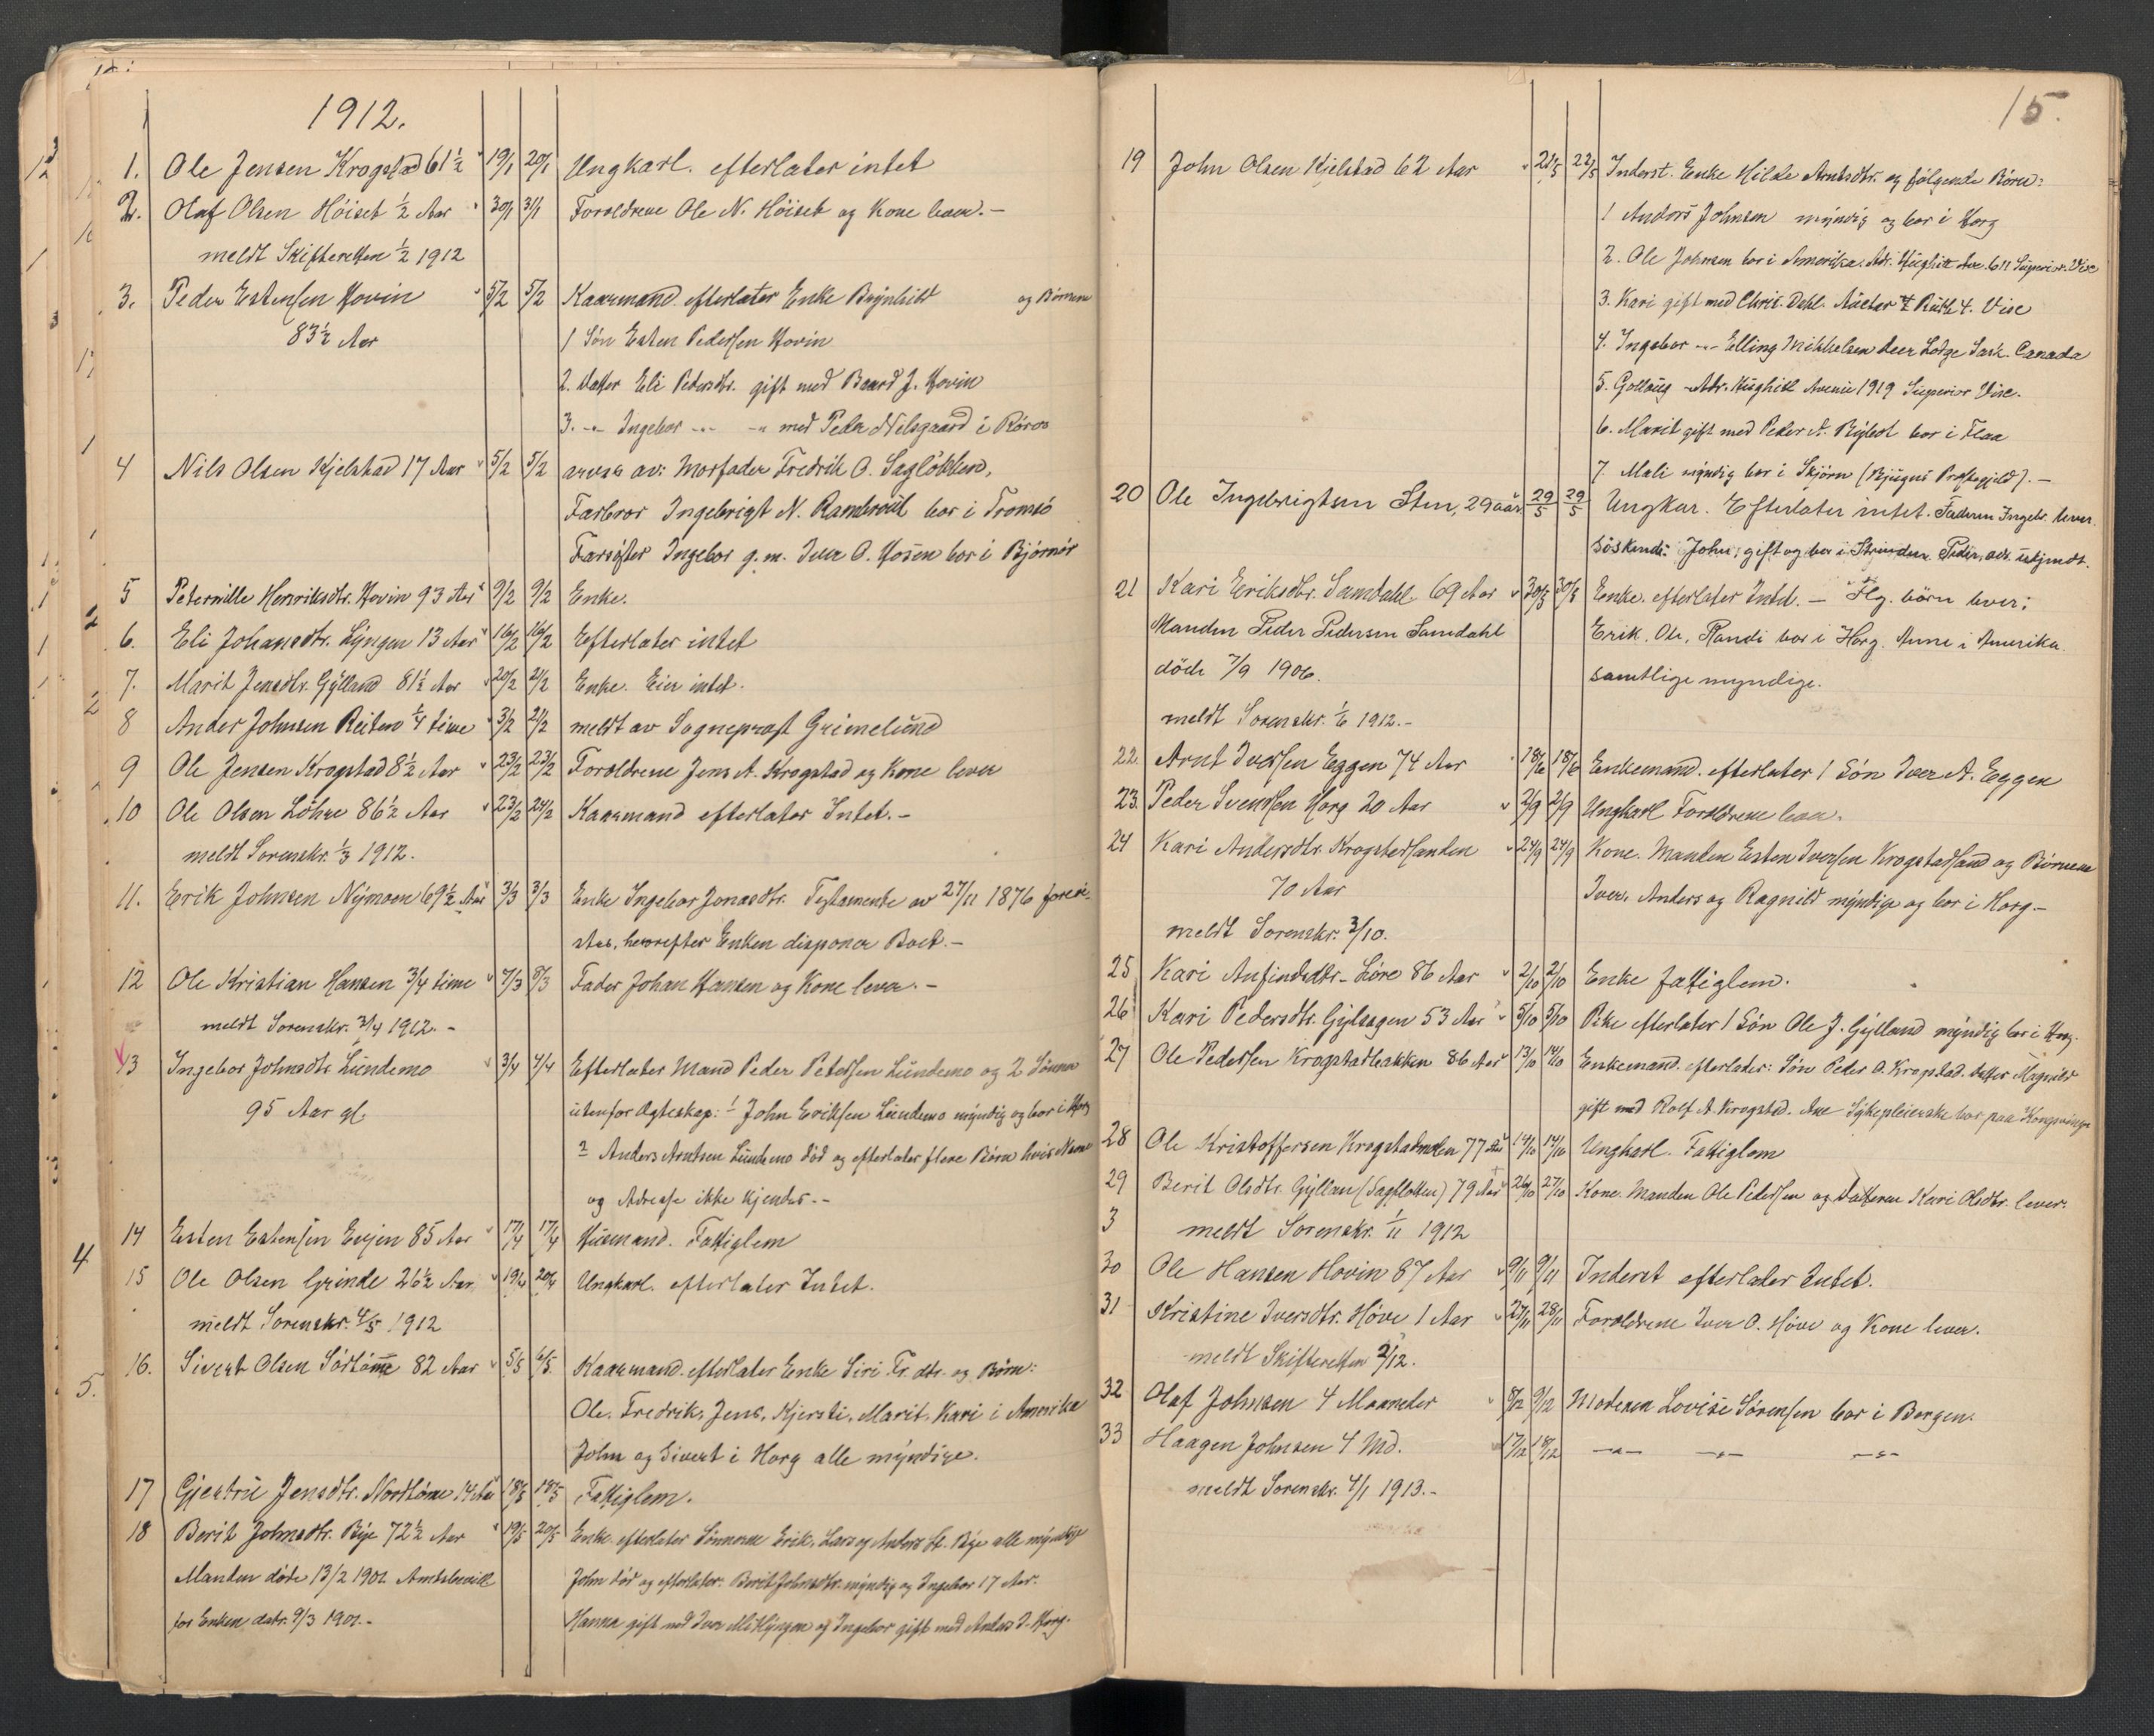 1912.
1. Ole Jensen Krogstad 61 ½ 19/1 20/1 Ungkarl. efterlater intet
2. Olaf Olsen Höiset ½ Aar 30/1 31/1 Foroldrene Ole N. Höiset og Kone lever.-
meldt Skifteretten ½ 1912
3. Peder Estensen Hovin 5/2 5/2 Kaarmand. efterlater Enke Brynhild og Börnene
83 ½ Aar
1 Sön Esten Pedersen Hovin
2. datter Eli Pedersdtr. gift med Baard J. Hovin
3. -"- Ingebor -"- -"- med Peder Nilsgaard i Röros
4 Nils Olsen Kjelstad 17 Aar 5/2 5/2 av: Morfader Fredrik O.
Farbror Ingebrigt N. bor i Tromsö
Farsöster Ingebor g.m. Iver O. Hosen bor i Bjørnör
5 Peternille Henriksdtr. Hovin 93 Aar 9/2 9/2 Enke.
6. Eli Johansdtr. Lyngen 13 Aar 16/2 16/2 Efterlater intet
7. Marit Jensdtr. Gylland 81 ½ Aar 20/2 21/2 Enke. Eier intet.
8 Ander Johnsen Reitem ¼ time 3/2 21/2 meldt av Sogneprest Grimelund
9 Ole Jensen Krogstad 8 ½ Aar 23/2 23/2 Foroldrene Jens A. Krogstad og Kone lever
10 Ole Olsen Löhre 86 ½ Aar 23/2 24/2 Kaarmand efterlater Intet.-
meldt Sorenskr. 1/3 1912.
11. Erik Johnsen Nymoen 69 ½ Aar 3/3 3/3 Enke Ingebor Jonasdtr. Testamente av 27/11 1876 forevi-
stes, hvorefter Enken disponer Boet.-
12 Ole Kristian Hansen 3/4 time 7/3 8/3 Fader Johan Hansen og Kone lever.-
meldt Sorenskr. 3/4 1912.-
13 Ingebor Johnsdtr Lundemo 3/4 4/4 Efterlater Mand Peder Petersen Lundemo og 2 Sönner
95 Aar gl.
utenfor Ægteskap: 1 John Eriksen Lundemo myndig og bor i Horg
2 Anders Arntsen Lundemo död og efterlater flere Börn hvis Navne
og Adresse ikke kjendes.-
14 Esten Estensen Evjen 85 Aar 17/4 17/4 Husmand. Fattiglem
15 Ole Olsen Grinde 26 ½ Aar 19/4 20/4 Ungkarl. efterlater Intet.
meldt Sorenskr. 4/5 1912
16. Sivert Olsen Sörtömme 82 Aar 5/5 6/5 Kaarmand. efterlater Enke Siri Fr. dtr. og Börn:
Ole. Fredrik, Jens, Kjersti, Marit, Kari i Amerika
John og Sivert i Horg alle myndige.
17 Gjertru Jensdtr. Nordtöme 14 Aar 18/5 18/5 Fattiglem.
18 Berit Johnsdtr. Bye 72 ½ Aar 19/5 20/5 Enke efterlater Sönnerne Erik, Lars og Anders St. Bye alle myndige
Manden döde 13/2 1901. Amtsbevill John död og efterlater: Berit Johnsdtr. myndig og Ingebor 17 Aar.
for Enken datr. 9/3 1901.- Hanna gift med Iver og Ingebor gift med Anders I. Horg.
15.
19 John Olsen Kjelstad 62 Aar 21/5 22/5 Inderst. Enke Hilde Arntsdtr. og fölgende Börn:
1 Anders Johnsen myndig og bor i Horg
2. Ole Johnsen bor i Amerika. Adr. Hughitt Ave. 611 Superior. Visc
3. Kari gift med Chris. Dahl. Visc
4. Ingebor -"- Elling Mikkelsen Deer Lodge Sask. Canada
5. Gollaug Adr. Hughitt Avenue 1919 Superior Visc.
6. Marit gift med Peder A. bor i Flaa
7. Mali myndig bor i Skjörn (Bjugns Prestegjeld).-
20 Ole Ingebrigtsen Sten, 29 aar 29/5 29/5 Ungkar. Efterlater intet. Faderen Ingebr. lever.
söskende: John, gift og bor i Strinden. Peder, adr. ukjendt.
21 Kari Eriksdtr. Samdahl. 69 Aar 30/5 30/5 Enke. efterlater Intet. - Flg. börn lever:
Manden Peder Pedersen Samdahl Erik, Ole, Randi bor i Horg. Anne i Amerika.
döde 7/9 1906. samtlige myndige.
meldt Sorenskr. 1/6 1912.-
22. Arnt Iversen Eggen 74 Aar 18/6 18/6 Enkemand. efterlater 1 Sön Iver A. Eggen
23. Peder Svendsen Horg 20 Aar 2/9 2/9 Ungkarl Foroldrene lever.
24 Kari Andersdtr. Krogstadsanden 24/9 24/9 Kone. Manden Esten Iversen Krogstadsand og Börnene
70 Aar Iver, Anders og Ragnild myndige og bor i Horg.-
meldt Sorenskr. 3/10.
25 Kari Anfindsdtr. Löre 86 Aar 2/10 2/10 Enke fattiglem.
26 Kari Pedersdtr. Gylhagen 53 Aar 5/10 5/10 Pike efterlater 1 Sön Ole J. Gylland myndig bor i Horg.
27 Ole Pedersen Krogstadbakken 86 Aar 13/10 14/10 Enkemand. efterlater: Sön Peder O. Krogstad. datter Magnild
gift med Rolf A. Krogstad. Ane Sykepleierske bor paa Kongsvinger
28 Ole Kristoffersen Krogstadmelen 77 Aar 14/10 14/10 Ungkarl. Fattiglem
29 Berit Olsdtr. Gyllan (Sagflotten) 79 Aar 26/10 27/10 Kone. Manden Ole Pedersen og Datteren Kari Olsdtr. lever.
3 meldt Sorenskr. 1/11 1912
30 Ole Hansen Hovin 87 Aar 9/11 9/11 Inderst efterlater Intet.
31 Kristine Iversdtr. Höve 1 Aar 27/11 28/11 Foroldrene Iver O. Höve og Kone lever.
meldt Skifteretten 2/12.
32 Olaf Johnsen 4 Maaneder 8/12 9/12 Moderen Lovise Sörensen bor i Bergen.
33 Haagen Johnsen 4 Md. 17/12 18/12 -"- -"- -"-
meldt Sorenskr. 4/1 1913.-